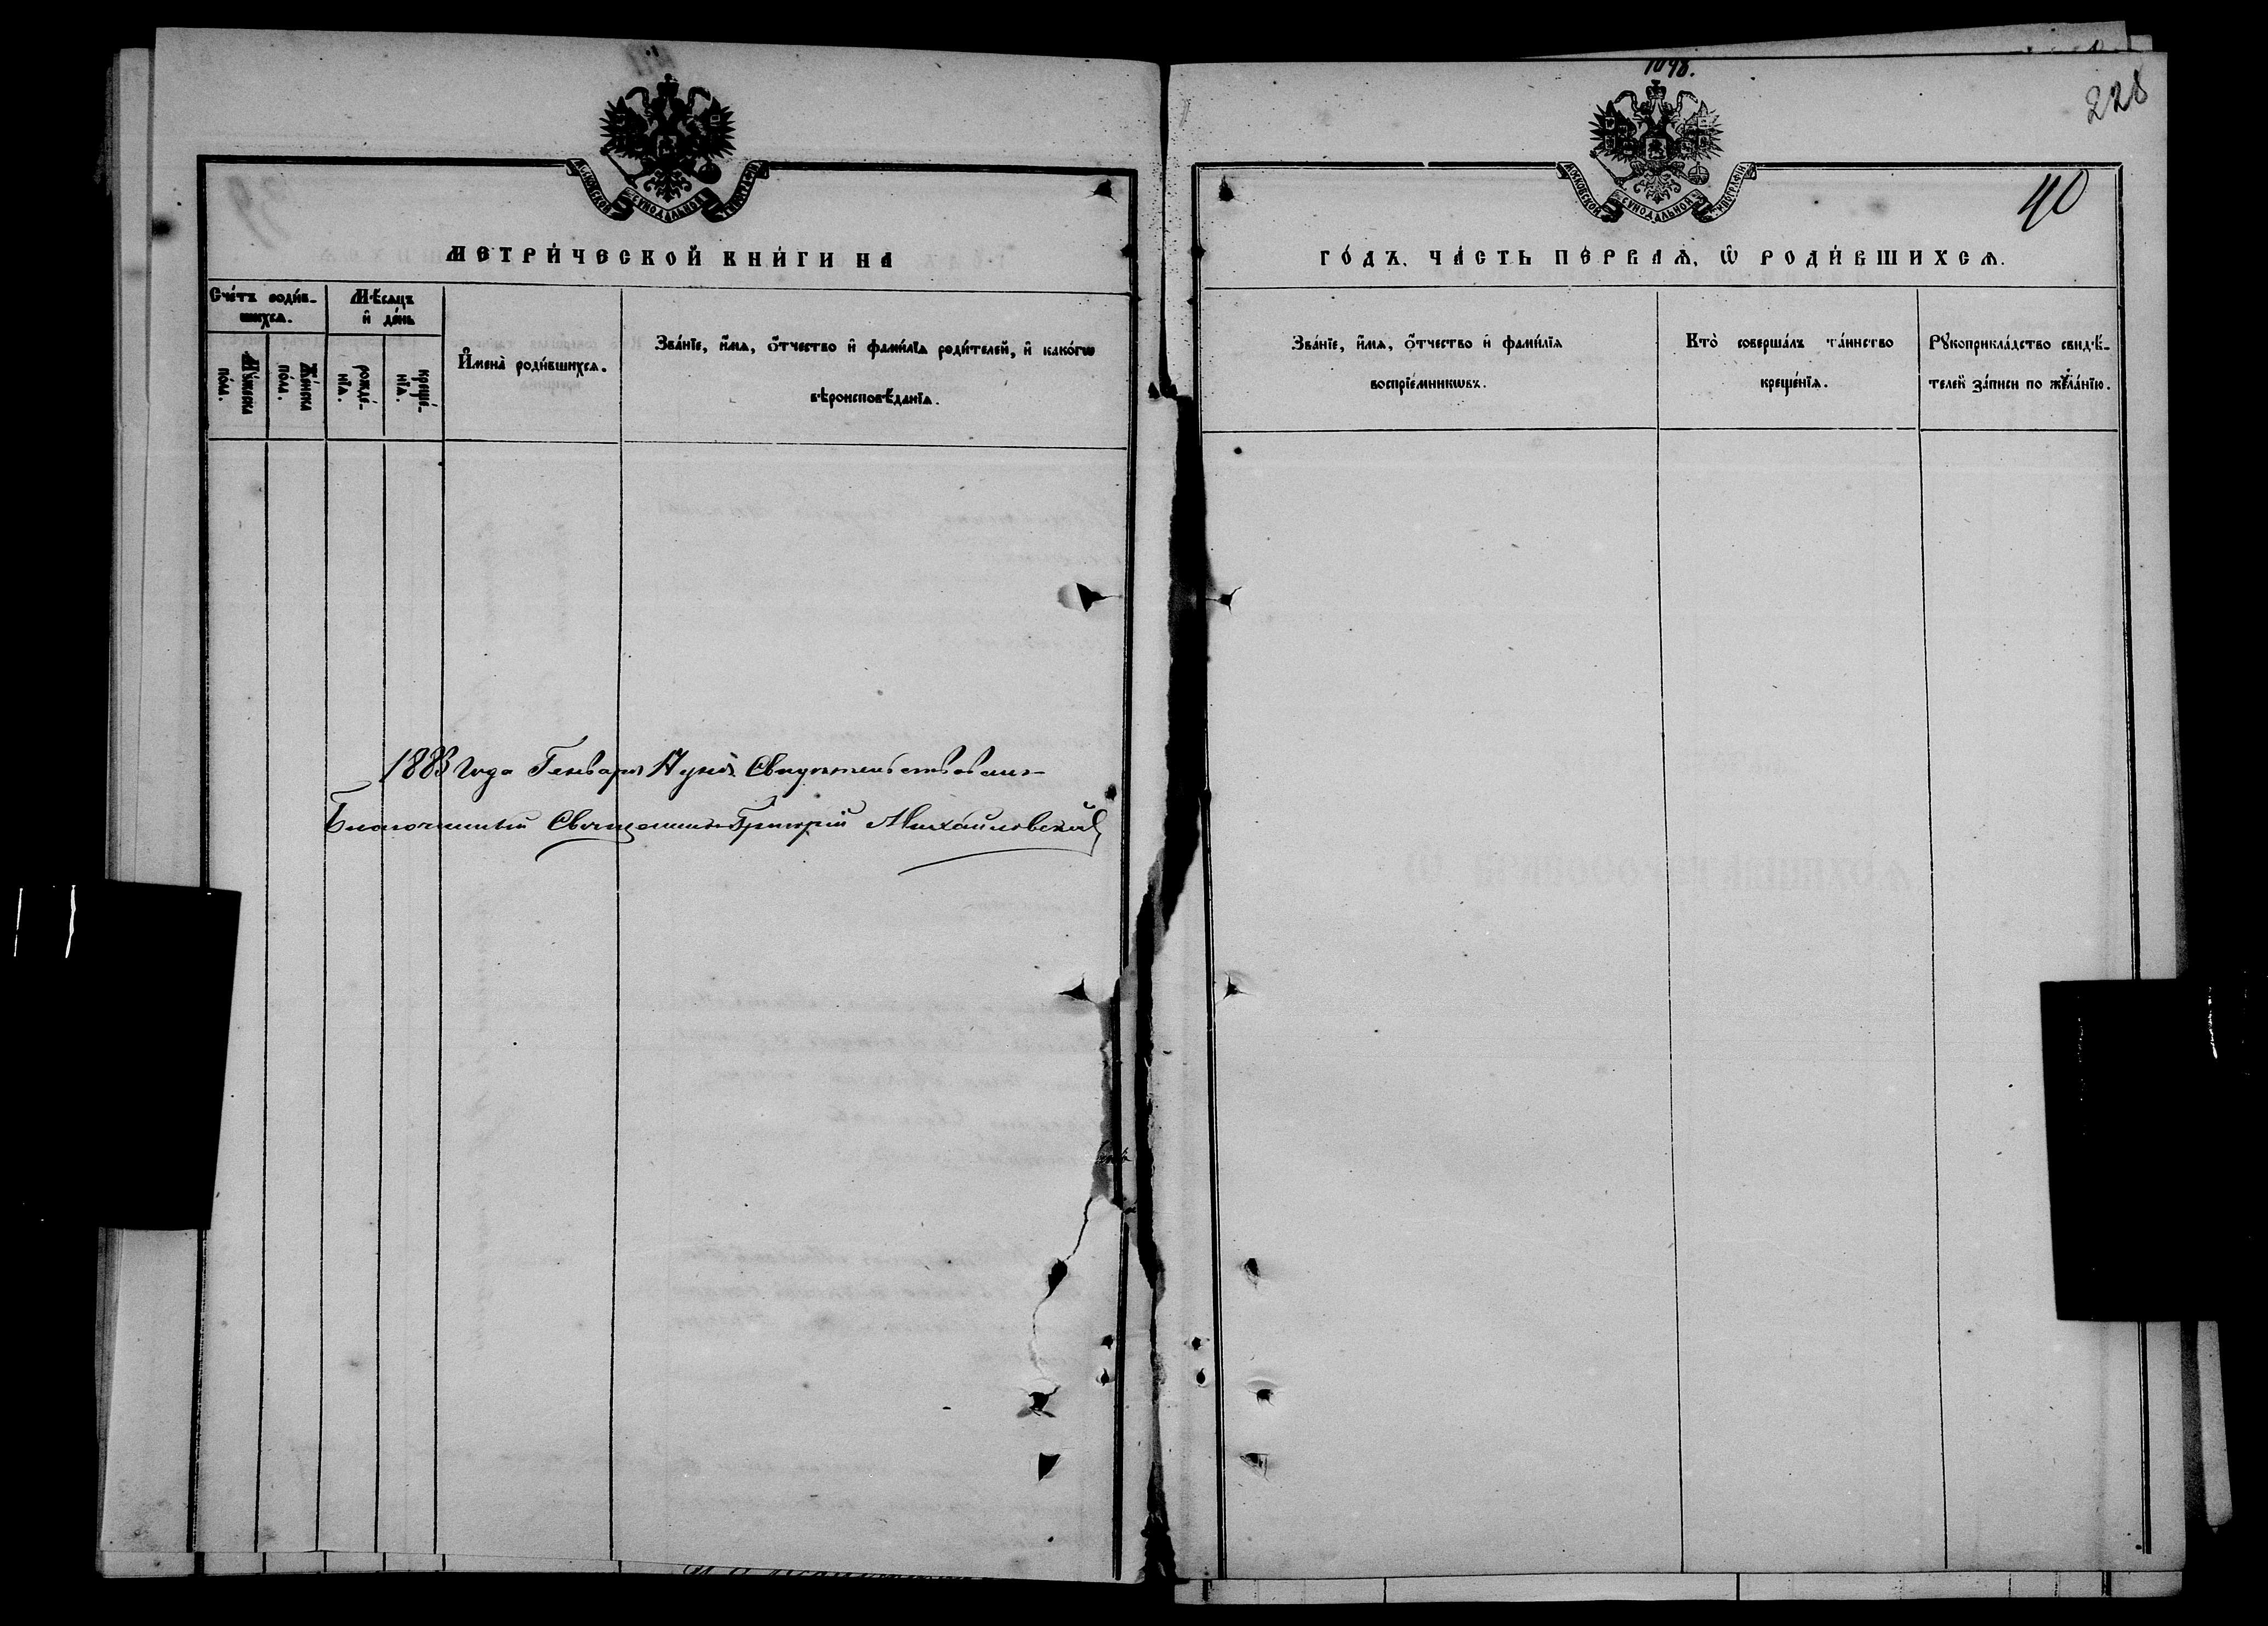 1098.
228
40
МОСКОВСКОЙ СУНОДАЛЬНОЙ ТИПОГРАФІИ
МОСКОВСКОЙ СУНОДАЛЬНОЙ ТИПОГРАФІИ
МЕТРИ́ЧЕСКОЙ КНИ́ГИ НА
ГО́ДЪ. ЧА́СТЬ ПЕ́РВАѦ, Ѡ҆ РОДИ́ВШИХСѦ.
Сче́тъ роди́в-
шихсѧ.
Мѣ́сѧцъ
и҆ де́нь
Мꙋ́жеска
по́ла.
Же́нска
по́ла.
рожде́-
нїѧ.
креще́-
нїѧ.
И҆мена̀ роди́вшихсѧ.
Зва́нїе, и҆́мѧ, ѻ҆́тчество и҆ фами́лїѧ роди́телей, и҆ како́гѡ
вѣроисповѣ́данїѧ.
Зва́нїе, и҆́мѧ, ѻ҆́тчество и҆ фами́лїѧ
воспрїе́мникѡвъ.
Кто̀ соверша́лъ та́инство
креще́нїѧ.
Рꙋкоприкла́дство свидѣ́-
телей за́писи по жела́нїю.
1883 года Генваря 17 дня Свидѣтельствовалъ
Благочинный Священникъ Григорій Михайловскій